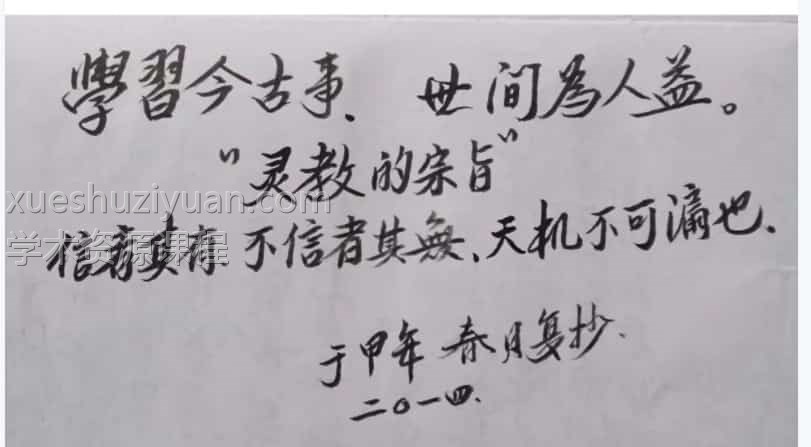 學習今古事、世间為人益。
"灵教的宗旨"
xueshuziyuan.com
学术资源课程
信者其有 不信者其無、天机不可漏也.
于甲年 春月复抄.
二〇一四.